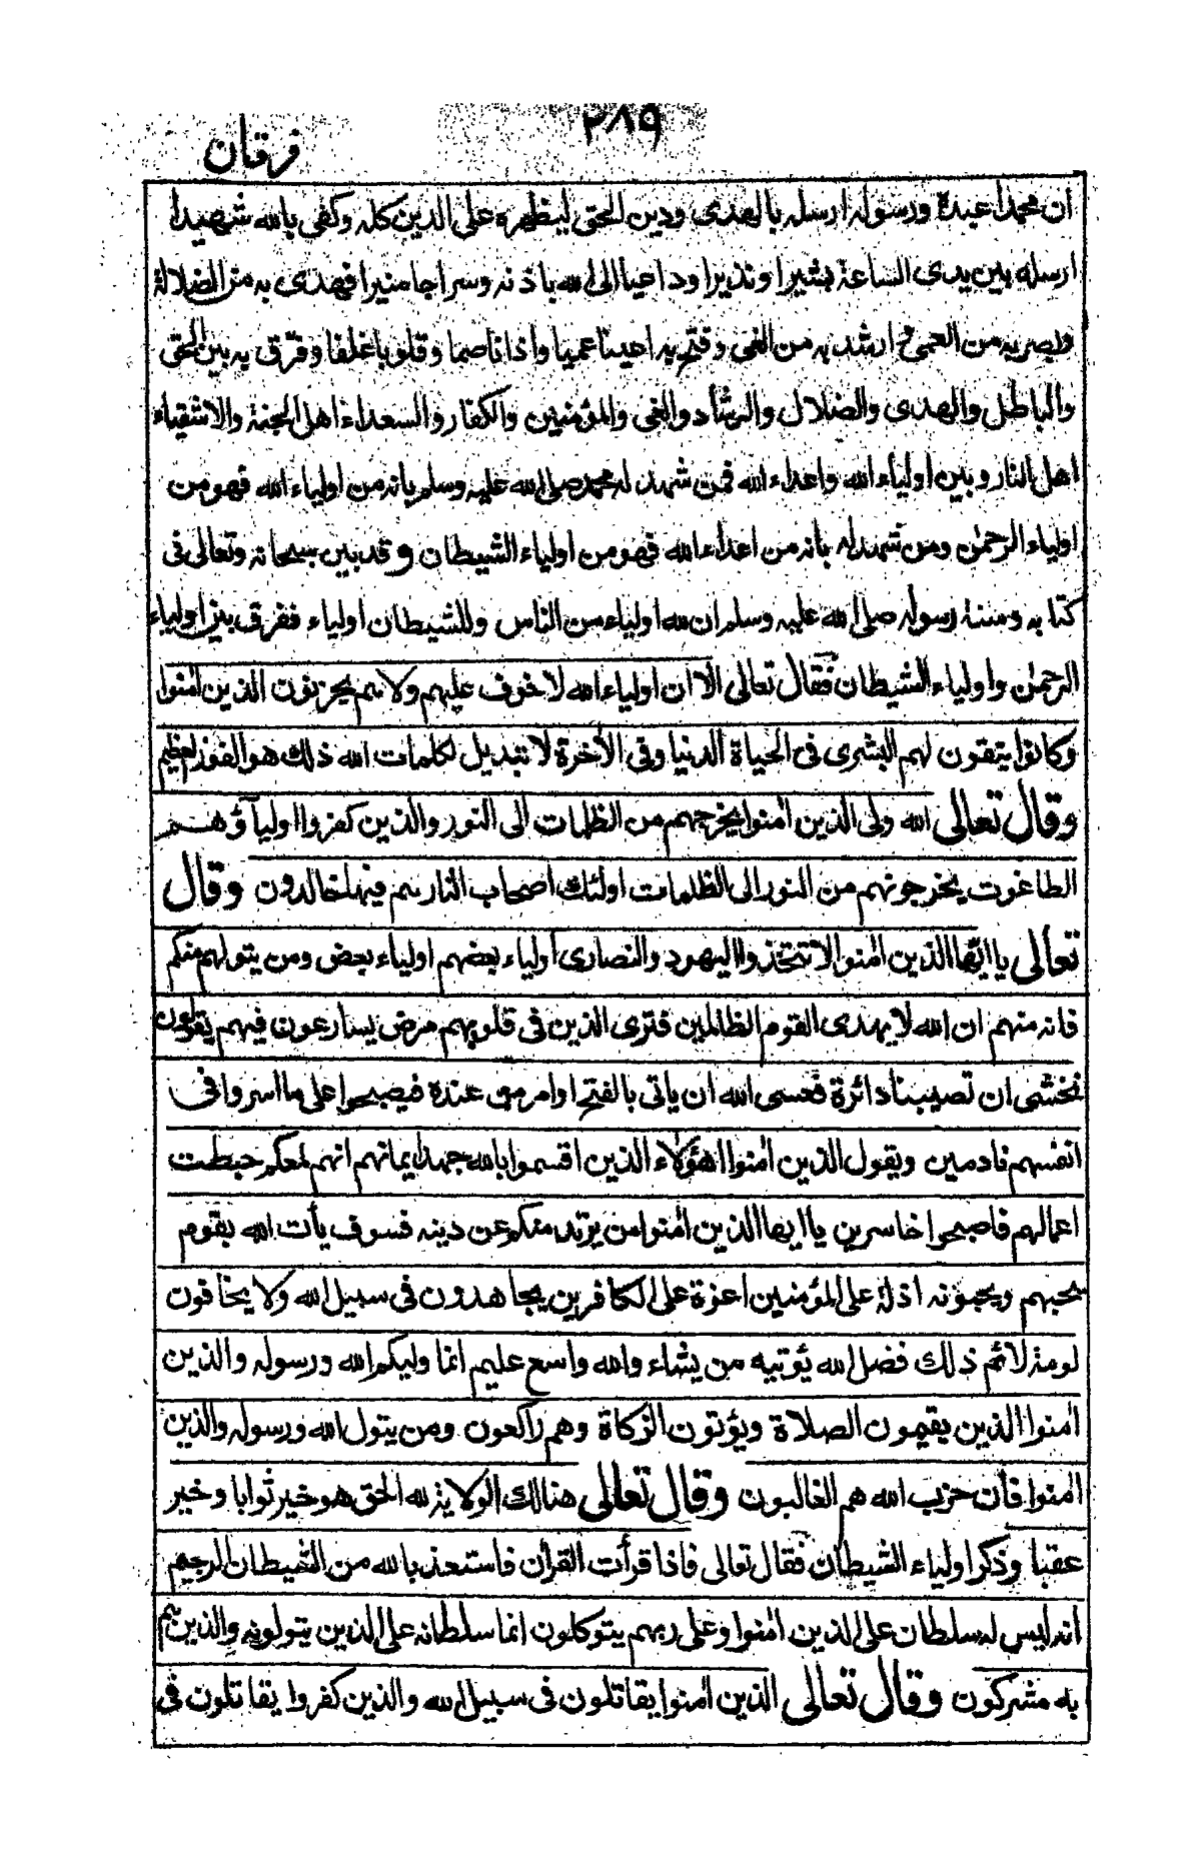 ٢٨٩
فرقان
ان محمدا عبدة ورسوله ارسله بالهدى ودين الحق ليظهره على الدين كله وكفى بالله شهيدا
ارسله بين يدى الساعة بشيرا ونذيرا وداعيا الى الله باذنه وسراجا منيرا فهدى به من الضلالة
وبصر به من العمى وارشد به من الغى وفتح به اعينا عميا واذانا صما وقلوبا غلفا وفرق به بين الحق
والباطل والهدى والضلال والرشاد والغى والمؤمنين والكفار والسعداء اهل الجنة والاشقياء
اهل النار وبين اولياء الله واعداء الله فمن شهد له محمد صلى الله عليه وسلم بانه من اولياء الله فهو من
اولياء الرحمٰن ومن شهد له بانه من اعداء الله فهو من اولياء الشيطان وقد بين سبحانه وتعالى فى
كتابه وسنة رسوله صلى الله عليه وسلم ان لله اولياء من الناس وللشيطان اولياء ففرق بين اولياء
الرحمٰن واولياء الشيطان فقال تعالى الا ان اولياء الله لا خوف عليهم ولا هم يحزنون الذين اٰمنوا
وكانوا يتقون لهم البشرى فى الحياة الدنيا وفى الآخرة لا تبديل لكلمات الله ذلك هو الفوز العظيم
وقال تعالى الله ولى الذين اٰمنوا يخرجهم من الظلمات الى النور والذين كفروا اوليآؤهم
الطاغوت يخرجونهم من النور الى الظلمات اولئك اصحاب النار هم فيها خالدون وقال
تعالى يا ايها الذين اٰمنوا لا تتخذوا اليهود والنصارى اولياء بعضهم اولياء بعض ومن يتولهم منكم
فانه منهم ان الله لا يهدى القوم الظالمين فترى الذين فى قلوبهم مرض يسارعون فيهم يقولون
نخشى ان تصيبنا دائرة فعسى الله ان ياتى بالفتح او امر من عنده فيصبحوا على ما اسروا فى
انفسهم نادمين ويقول الذين اٰمنوا اهؤلاء الذين اقسموا بالله جهد ايمانهم انهم لمعكم حبطت
اعمالهم فاصبحوا خاسرين يا ايها الذين اٰمنوا من يرتد منكم عن دينه فسوف يأت الله بقوم
يحبهم ويحبونه اذلة على المؤمنين اعزة على الكافرين يجاهدون فى سبيل الله ولا يخافون
لومة لائم ذلك فضل الله يؤتيه من يشاء والله واسع عليم انما وليكم الله ورسوله والذين
اٰمنوا الذين يقيمون الصلاة ويؤتون الزكاة وهم راكعون ومن يتول الله ورسوله والذين
اٰمنوا فان حزب الله هم الغالبون وقال تعالى هنالك الولاية لله الحق هو خير ثوابا وخير
عقبا وذكر اولياء الشيطان فقال تعالى فاذا قرأت القرآن فاستعذ بالله من الشيطان الرجيم
انه ليس له سلطان على الذين اٰمنوا وعلى ربهم يتوكلون انما سلطانه على الذين يتولونه والذين هم
به مشركون وقال تعالى الذين اٰمنوا يقاتلون فى سبيل الله والذين كفروا يقاتلون فى